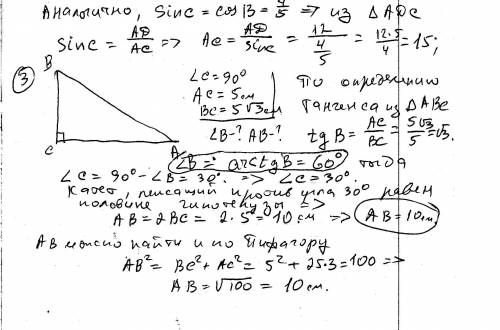 Аналогично, Sinc = cosB = 4/5 => из △ADC
Sinc = AD/AC => AC = AD/Sinc = 12/(4/5) = 12·5/4 = 15;
③
B
C
A
∠C = 90°
AC = 5см
BC = 5√3 см
∠B-? AB-?
По определению
тангенса из △ABC
tg B = AC/BC = 5√3/5 = √3.
∠B = arctg B = 60° тогда
∠C = 90° - ∠B = 30°. => ∠C = 30°.
Катет, лежащий против угла 30° равен
половине гипотенузы =>
AB = 2BC = 2·5 = 10 см => AB = 10 см.
AB можно найти и по Пифагору
AB² = BC² + AC² = 5² + 25·3 = 100 =>
AB = √100 = 10 см.